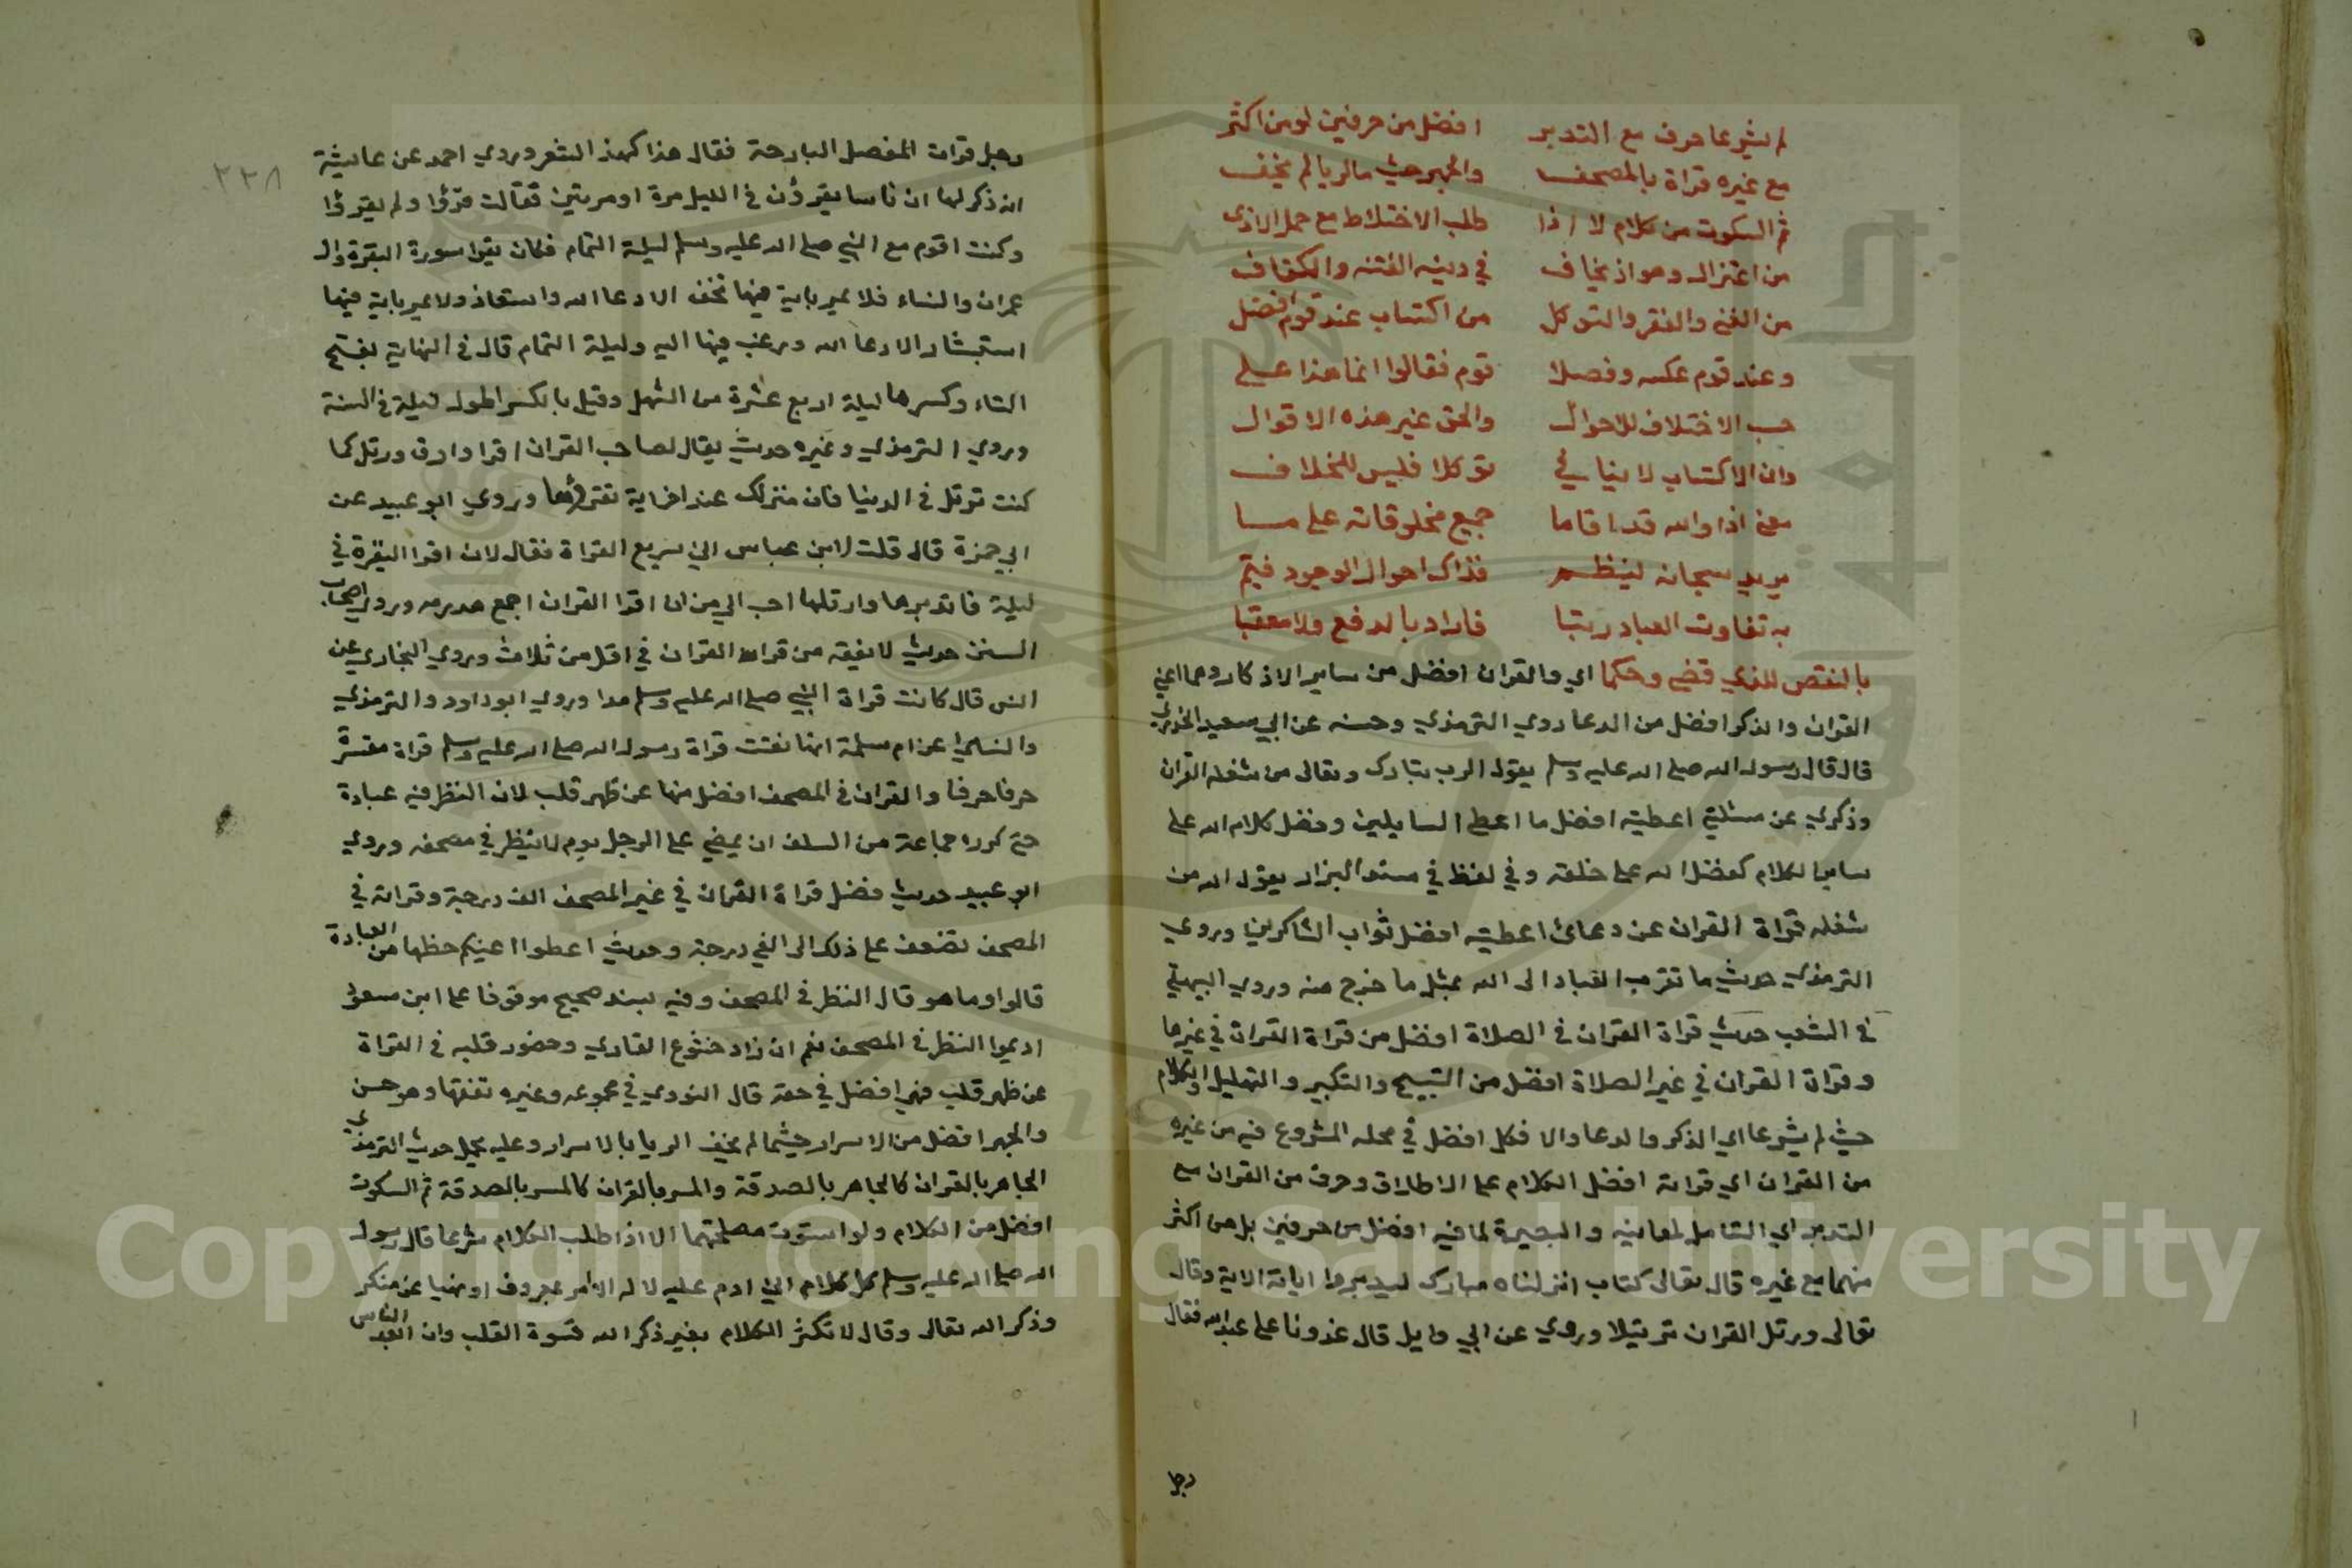 لم يشرعا حرف مع التدبر افضل من حرفين لو من اكثر
مع غيره قراة بالمصحف والجهر حيث ما لريا لم يخف
ثم السكوت من كلام لا اذا طلب الاختلاط مع حمل الاذى
من اعتزال وهو اذ يخاف في دينه الفتنه والكفاف
من الغنى والفقر والتوكل من اكتساب عند قوم افضل
وعند قوم عكسه وفصلا قوم فقالوا انما هذا على
حسب الاختلاف للاحوال والحق غير هذه الاقوال
وان الاكتساب لا ينافي توكلا فليس للخلاف
معنى اذا والله قد اقاما جميع مخلوقاته على ما
يريد سبحانه لينظم فذاك احوال الوجود فيتم
به تفاوت العباد رتبا فاراد بالدفع ولا معقبا
بالنقص للذي قضى وحكما اي والقران افضل من ساير الاذكار وهما اعني
القران والذكر افضل من الدعا روي الترمذي وحسنه عن ابي سعيد الخدري
قال قال رسول الله صلى الله عليه وسلم يقول الرب تبارك وتعالى من شغله القران
وذكري عن مسئلتي اعطيته افضل ما اعطى السايلين وفضل كلام الله على
ساير الكلام كفضل الله على خلقه وفي لفظ في مسند البزار يقول الله من
شغله قراة القران عن دعائ اعطيته افضل ثواب الشاكرين وروي
الترمذي حديث ما تقرب العباد الى الله بمثل ما خرج منه وروي البيهقي
في الشعب حديث قراة القران في الصلاة افضل من قراة القران في غيرها
وقراة القران في غير الصلاة افضل من التسبيح والتكبير والتهليل والكلام
حيث لم يشرعا اي الذكر والدعا والا فكل افضل في محله المشروع فيه من غيره
من القران اي قراته افضل الكلام على الاطلاق وحرف من القران مع
التدبر اي التامل لمعانيه والبصيرة لما فيه افضل من حرفين بل من اكثر
منهما مع غيره قال تعالى كتاب انزلناه مبارك ليدبروا اياته الاية وقال
تعالى ورتل القران ترتيلا وروي عن ابي وايل قال غدونا على عبد الله فقال
رجل
٢٣٨
رجل قرات المفصل البارحة فقال هذا كهذ الشعر وروي احمد عن عايشة
انه ذكر لها ان ناسا يقرؤن في الليل مرة او مرتين فقالت قرؤا ولم يقرؤا
وكنت اقوم مع النبي صلى الله عليه وسلم ليلة التمام فكان يقرا سورة البقرة وال
عمران والنساء فلا يمر باية فيها تخف الا دعا الله واستعاذ ولا يمر باية فيها
استبشار الا دعا الله ورغب فيها اليه وليلة التمام قال في النهاية بفتح
التاء وكسرها ليلة اربع عشرة من الشهر وقيل بالكسر اطول ليلة في السنة
وروي الترمذي وغيره حديث يقال لصاحب القران اقرا وارق ورتل كما
كنت ترتل في الدنيا فان منزلك عند اخر اية تقرؤها وروي ابو عبيد عن
ابي حمزة قال قلت لابن عباس اني سريع القراة فقال لان اقرا البقرة في
ليلة فاتدبرها وارتلها احب الي من ان اقرا القران اجمع هدرمه وروي اصحاب
السنن حديث لا يفقه من قرا القران في اقل من ثلاث وروي البخاري عن
انس قال كانت قراة النبي صلى الله عليه وسلم مدا وروي ابو داود والترمذي
والنساي عن ام سلمة انها نعتت قراة رسول الله صلى الله عليه وسلم قراة مفسرة
حرفا حرفا والقران في المصحف افضل منها عن ظهر قلب لان النظر فيه عبادة
حتى كره جماعة من السلف ان يمضي على الرجل يوم لا ينظر في مصحفه وروي
ابو عبيد حديث فضل قراة القران في غير المصحف الف درجة وقراته في
المصحف تضعف على ذلك الى الفي درجة وحديث اعطوا اعينكم حظها من العبادة
قالوا وما هو قال النظر في المصحف وفيه بسند صحيح موقوفا على ابن مسعود
اديموا النظر في المصحف نعم ان زاد خشوع القاري وحضور قلبه في القراة
عن ظهر قلب فهي افضل في حقه قال النووي في مجموعه وغيره تفقها وهو حسن
والجهر افضل من الاسرار حيثما لم يخف الريا بالاسرار وعليه يحمل حديث الترمذي
الجاهر بالقران كالجاهر بالصدقة والمسر بالقران كالمسر بالصدقة ثم السكوت
افضل من الكلام ولو استوت مصلحتهما الا اذا طلب الكلام شرعا قال رسول
الله صلى الله عليه وسلم كل كلام ابن ادم عليه لا له الا امر بمعروف او نهيا عن منكر
وذكر الله تعالى وقال لا تكثر الكلام بغير ذكر الله قسوة القلب وان ابعد الناس
Copyright © King Saud University